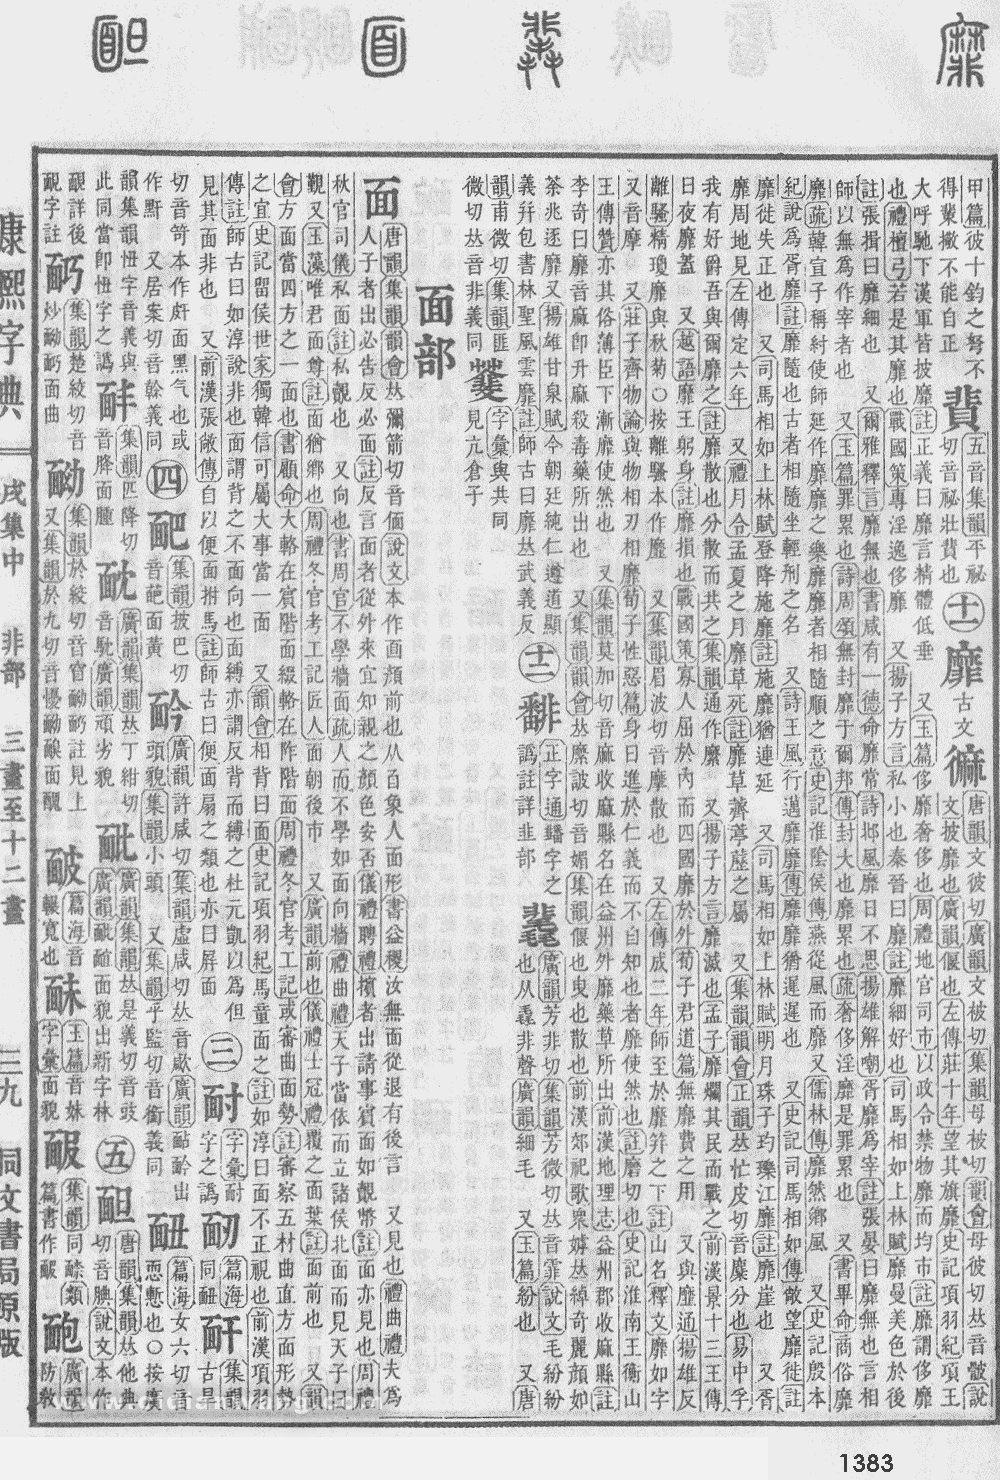 甲篇彼十鈞之弩不
得棐撇不能自正
五音集韻平祕
切音祕壯也
十一
靡
古文
唐韻文彼切廣韻文被切集韻母被切韻會母彼切𠀤音骳說
文披靡也廣韻偃也左傳莊十年望其旗靡史記項羽紀項王
大呼馳下漢軍皆披靡註正義曰靡言精體低垂 又玉篇侈靡奢侈也周禮地官司市以政令禁物靡而均市註靡謂侈靡
也禮檀弓若是其靡也戰國策專淫逸侈靡 又揚子方言私小也秦晉曰靡註靡細好也司馬相如上林賦靡曼美色於後
註張揖曰靡細也 又爾雅釋言靡無也書咸有一德命靡常詩邶風靡日不思揚雄解嘲胥靡為宰註張晏曰靡無也言相
師以無為作宰者也 又玉篇罪累也詩周頌無封靡于爾邦傳封大也靡累也疏奢侈淫靡是罪累也 又書畢命商俗靡
靡疏韓宣子稱紂使師延作靡靡之樂靡靡者相隨順之意史記淮陰侯傳燕從風而靡又儒林傳靡然鄉風 又史記殷本
紀說為胥靡註靡隨也古者相隨坐輕刑之名 又詩王風行邁靡靡傳靡靡猶遲遲也 又史記司馬相如傳敞望靡徙註
靡徙失正也 又司馬相如上林賦登降施靡註施靡猶連延 又司馬相如上林賦明月珠子玓瓅江靡註靡崖也 又胥
靡周地見左傳定六年 又禮月令孟夏之月靡草死註靡草薺葶藶之屬 又集韻韻會正韻𠀤忙皮切音糜分也易中孚
我有好爵吾與爾靡之註靡散也分散而共之集韻通作縻 又揚子方言靡滅也孟子靡爛其民而戰之前漢景十三王傳
日夜靡蓋 又越語靡王躬身註靡損也戰國策寡人屈於內而四國靡於外荀子君道篇無靡費之用 又與靡通揚雄反
離騷精瓊靡與秋菊○按離騷本作靡 又集韻眉波切音摩散也 又左傳成二年師至於靡筓之下註山名釋文靡如字
又音摩 又莊子齊物論與物相刃相靡荀子性惡篇身日進於仁義而不自知也者靡使然也註磨切也史記淮南王衡山
王傳贊亦其俗薄臣下漸靡使然也 又集韻莫加切音麻收靡縣名在益州外靡藥草所出前漢地理志益州郡收靡縣註
李奇曰靡音麻即升麻殺毒藥所出也 又集韻韻會𠀤縻詖切音媚集韻偃也曳也散也前漢郊祀歌衆嫭𠀤綽奇麗顏如
荼兆逐靡又揚雄甘泉賦今朝廷純仁遵道顯
義幷包書林聖風雲靡註師古曰靡𠀤武義反
十二
正字通䊩字之
譌註詳韭部
廣韻芳非切集韻芳微切𠀤音霏說文毛紛紛
也从毳非聲廣韻細毛 又玉篇紛也 又唐
韻甫微切集韻匪
微切𠀤音非義同
字彙與共同
見亢倉子
面部
面
唐韻集韻韻會𠀤彌箭切音偭說文本作𠚑顏前也从𦣻象人面形書益稷汝無面從退有後言 又見也禮曲禮夫為
人子者出必告反必面註反言面者從外來宜知親之顏色安否儀禮聘禮擯者出請事賓面如覿幣註面亦見也周禮
秋官司儀私面註私覿也 又向也書周官不學牆面疏人而不學如面向牆禮曲禮天子當依而立諸侯北面而見天子曰
覲又玉藻唯君面尊註面猶鄉也周禮冬官考工記匠人面朝後市 又廣韻前也儀禮士冠禮覆之面葉註面前也 又韻
會方面當四方之一面也書顧命大輅在賓階面綴輅在阼階面周禮冬官考工記或審曲面勢註審察五材曲直方面形勢
之宜史記留侯世家獨韓信可屬大事當一面 又韻會相背曰面史記項羽紀馬童面之註如淳曰面不正視也前漢項羽
傳註師古曰如淳說非也面謂背之不面向也面縛亦謂反背而縛之杜元凱以為但
見其面非也 又前漢張敞傳自以便面拊馬註師古曰便面扇之類也亦曰屏面
三
耐
字彙耐
字之譌
篇海
同䩄
集韻
古旱
切音笴本作皯面黑气也或
作黚 又居案切音榦義同
四
集韻披巴切
音葩面黃
廣韻許咸切集韻虛咸切𠀤音歁廣韻䩂䩎出
頭貌集韻小頭 又集韻乎監切音銜義同
篇海女六切音
恧慙也○按廣
韻集韻忸字音義與
此同當即忸字之譌
集韻匹降切
音胮面腫
廣韻集韻𠀤丁紺切
音馾廣韻頑劣貌
廣韻集韻𠀤是義切音豉
廣韻面貌出新字林
五
唐韻集韻𠀤他典
切音腆說文本作
靦詳後
靦字註
集韻楚絞切音
炒䩈䩌面曲
集韻於絞切音窅䩈註見上
又集韻於九切音懮䩈面醜
篇海音
輾寬也
玉篇音妹
字彙面貌
集韻同類
篇書作
廣韻
防敎
康熙字典
戌集中
非部
三畫至十二畫
三九
同文書局原版
1383